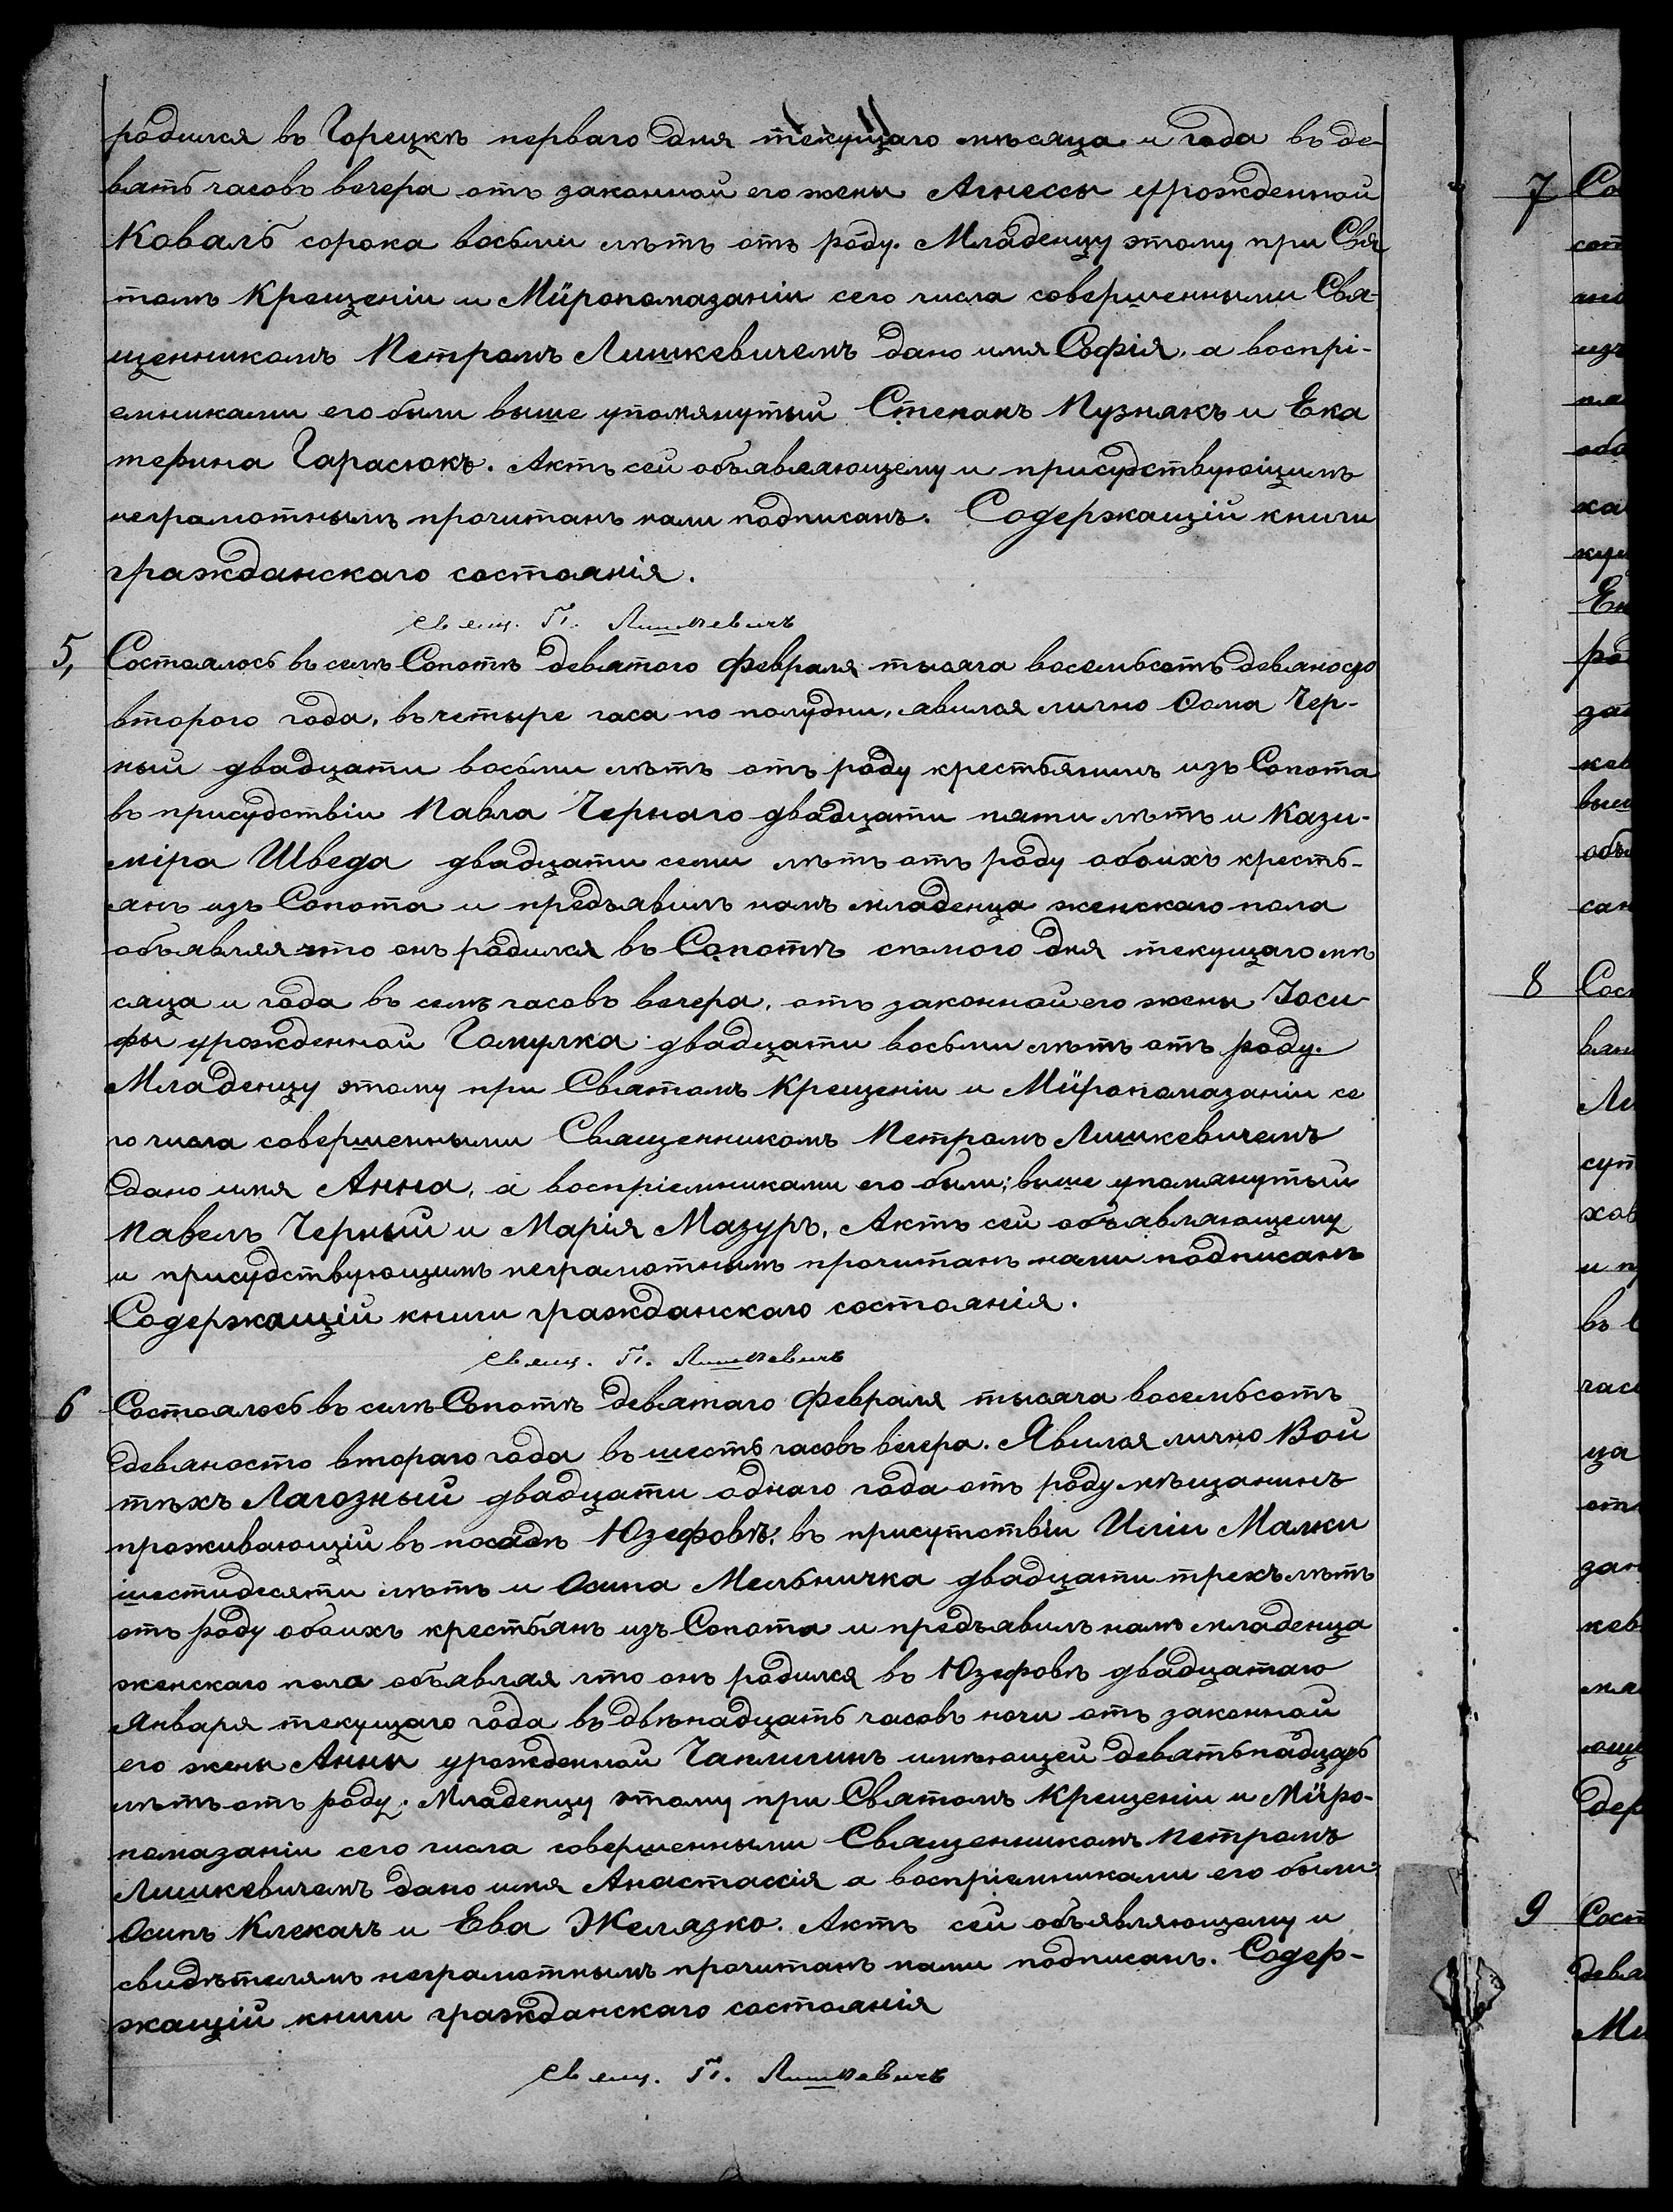 родился въ Горецкѣ перваго дня текущаго мѣсяца и года въ де-
вять часовъ вечера отъ законной его жены Агнессы урожденной
Коваль сорока восьми лѣтъ отъ роду. Младенцу этому при Свя
томъ Крещеніи и Мѵропомазаніи сего числа совершенными Свя-
щенникомъ Петромъ Лишкевичемъ дано имя Софія, а воспрі-
емниками его были выше упомянутый Степанъ Пузнякъ и Ека
терина Гарасюкъ. Актъ сей объявляющему и присудствующимъ
неграмотнымъ прочитанъ нами подписанъ. Содержащій книги
гражданскаго состоянія.
Свящ. П. Лишкевичъ
5, Состоялось въ селѣ Сопотѣ девятого февраля тысяча восемьсотъ девяносто
второго года, въ четыре часа по полудни, явился лично Ѳома Чер-
ный двадцати восьми лѣтъ отъ роду крестьянинъ изъ Сопота
въ присудствіи Павла Чернаго двадцати пяти лѣтъ и Кази-
міра Шведа двадцати семи лѣтъ отъ роду обоихъ кресть-
янъ изъ Сопота и предъявилъ намъ младенца женскаго пола
объявляя что онъ родился въ Сопотѣ сѣмого дня текущаго мѣ
сяца и года въ семь часовъ вечера, отъ законной его жены Іоси-
фы урожденной Гомулка двадцати восьми лѣтъ отъ роду.
Младенцу этому при Святомъ Крещеніи и Мѵропомазаніи се
го числа совершенными Священникомъ Петромъ Лишкевичемъ
дано имя Анна, а воспріемниками его были: выше упомянутый
Павелъ Черный и Марія Мазуръ, Актъ сей объявляющему
и присудствующимъ неграмотнымъ прочитанъ нами подписанъ
Содержащій книги гражданскаго состоянія.
Свящ. П. Лишкевичъ
6 Состоялось въ селѣ Сопотѣ девятаго Февраля тысяча восемьсотъ
девяносто втораго года въ шесть часовъ вечера. Явился лично Вой
тѣхъ Лагозный двадцати одного года отъ роду мѣщанинъ
проживающій въ посадѣ Юзефовѣ, въ присутствіи Иліи Малки
шестидесяти лѣтъ и Осипа Мельничка двадцати трехъ лѣтъ
отъ роду обоихъ крестьянъ изъ Сопота и предъявилъ намъ младенца
женскаго пола объявляя что онъ родился въ Юзефовѣ двадцатаго
Января текущаго года въ двѣнадцать часовъ ночи отъ законной
его жены Анны урожденной имѣющей девятьнадцать
лѣтъ отъ роду. Младенцу этому при Святомъ Крещеніи и Мѵро-
помазаніи сего числа совершенными Священникомъ Петромъ
Лишкевичемъ дано имя Анастасія а воспріемниками его были:
Осипъ Клекачъ и Ева Желязко. Актъ сей объявляющему и
свидѣтелямъ неграмотнымъ прочитанъ нами подписанъ. Содер-
жащій книги гражданскаго состоянія
Свящ. П. Лишкевичъ
7
8
9